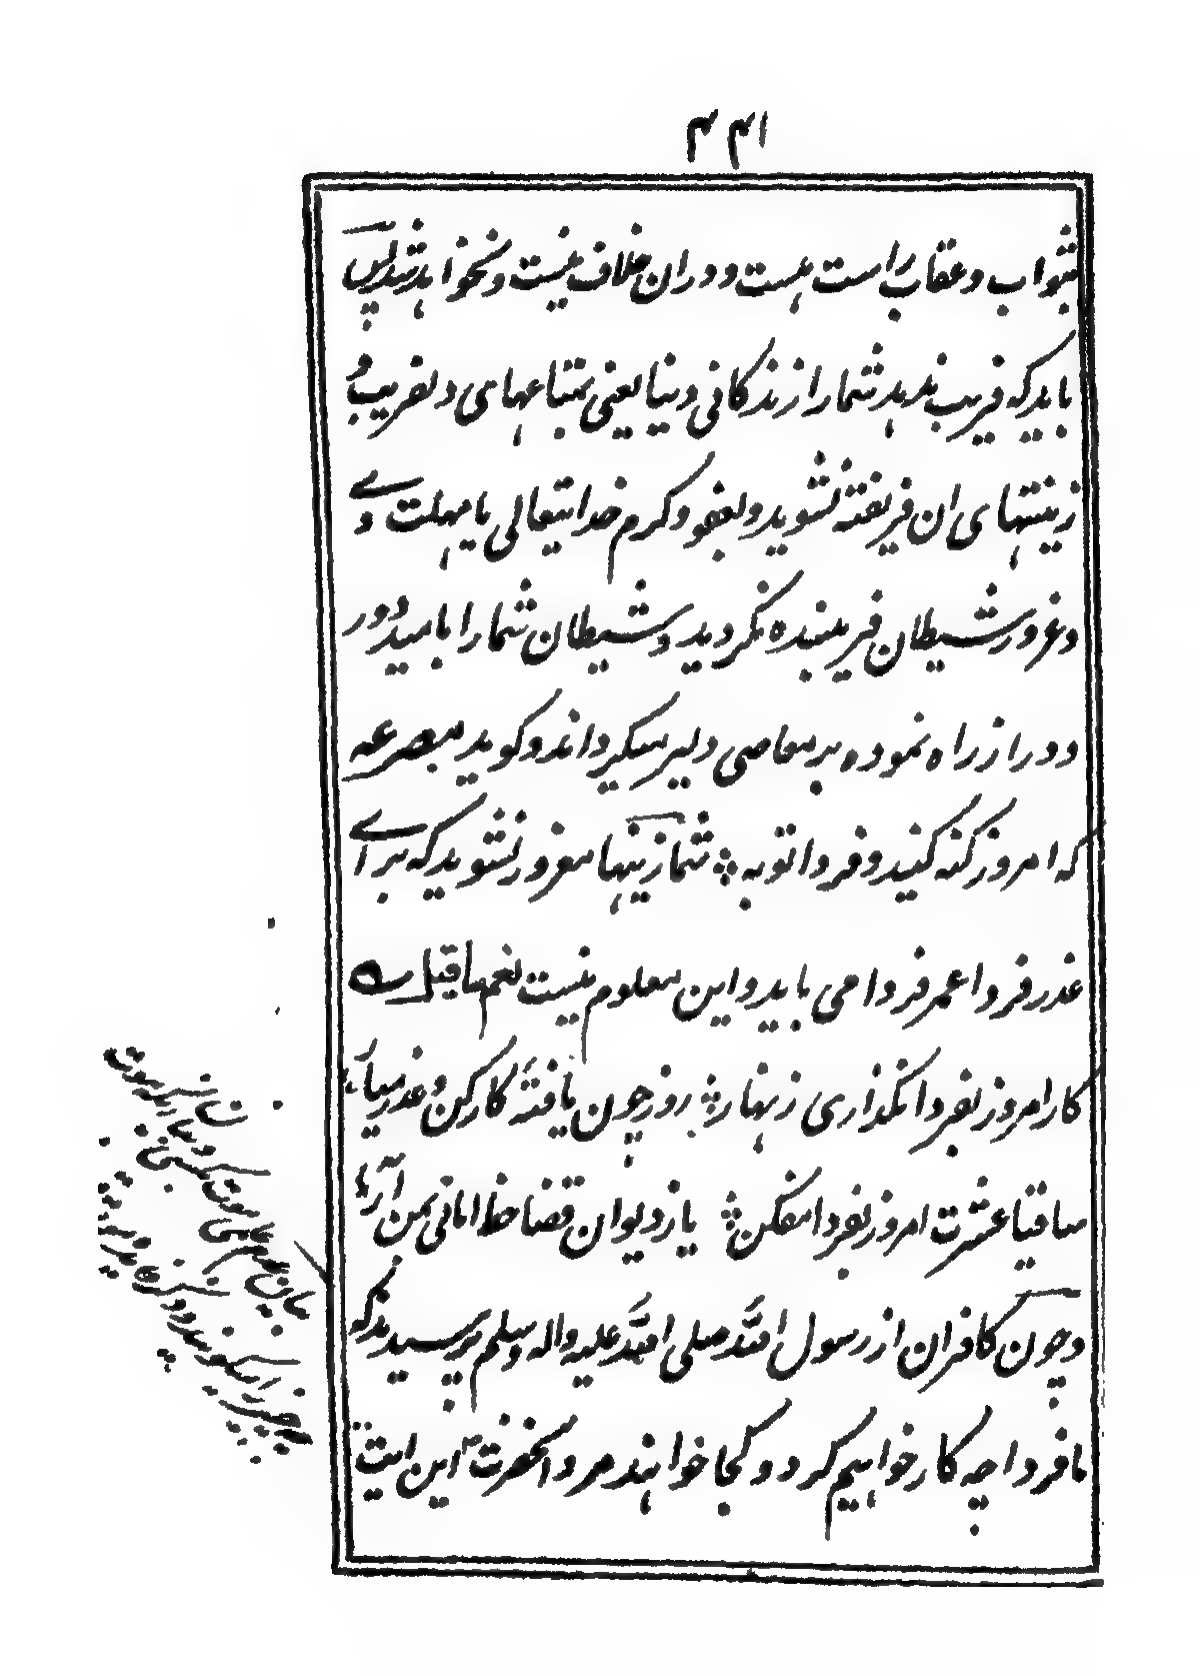 ۴۴۱
بثواب و عقاب راست هست و در ان خلاف نیست و نخواهد شد پس
باید که فریب ندهد شما را زندکانی دنیا یعنی بمتاعهای دلفریب و
زینتهای ان فریفته نشوید و بعفو و کرم خدایتعالی با مهلت دی
و غرور شیطان فریبنده نکردید و شیطان شما را بامید دور
و دراز راه نموده بر معاصی دلیر میکرداند و کوید مصرعه
که امروز کنه کنید و فردا توبه شما زینها مغرور نشوید که برای
عذر فردا عمر فردا می باید و این معلوم نیست
کار امروز بفردا نکذاری زنهار روز چون یافتهٔ کار کن و عذر میار
ساقیا عشرت امروز بفردا مفکن یا ز دیوان قضا خط امانی بمن آر
و چون کافران از رسول الله صلی الله علیه و اله و سلم پرسیدند که
ما فردا چه کار خواهیم کرد و کجا خواهند مرد انحضرت این ایت